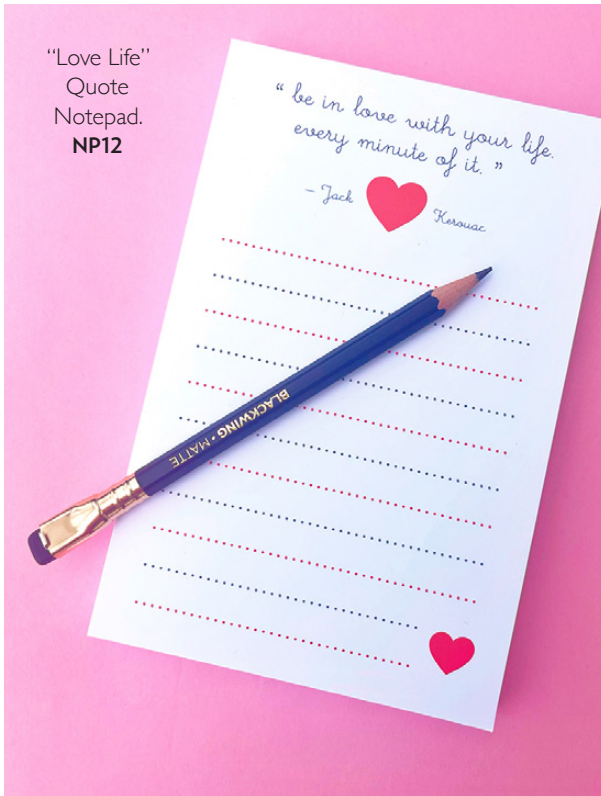 “Love Life”
Quote
Notepad.
NP12
“ be in love with your life.
every minute of it. ”
– Jack Kerouac
BLACKWING • MATTE